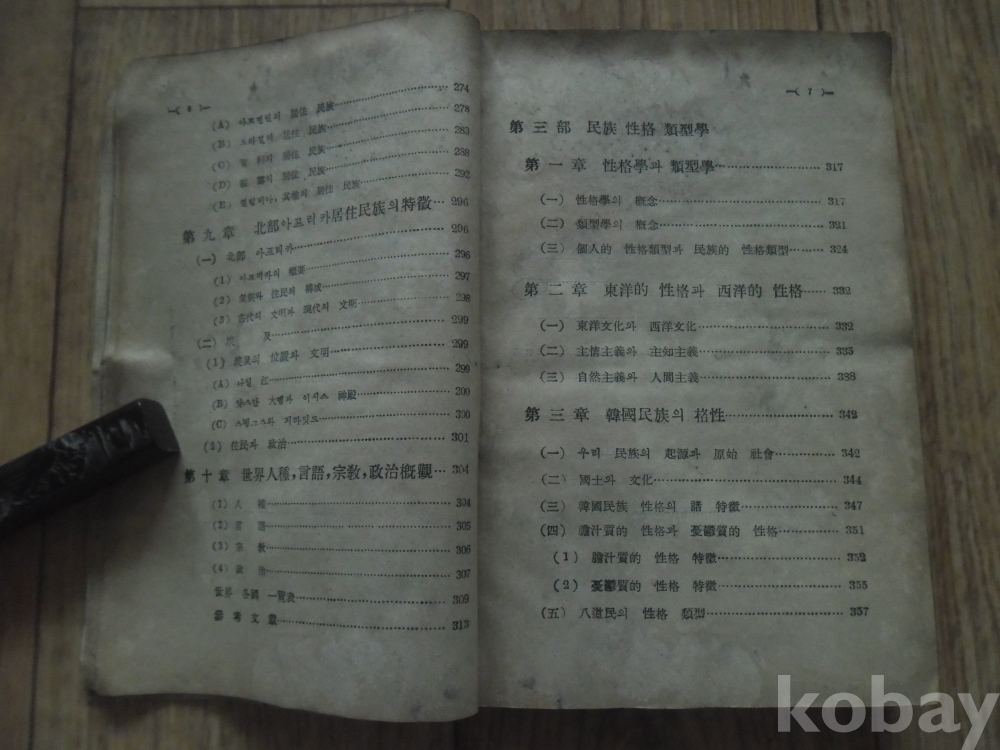 6
(A) 居住 民族 274
(B) 居住 民族 278
(C) 居住 民族 283
(D) 居住 民族 288
(E) 其他의 居住 民族 292
第九章 北部아프리카居住民族의特徵 296
(一) 北部 아프리카 296
(1) 아프리카의 槪要 296
(2) 住民의 構成 297
(3) 古代의 文明과 現代의 文明 298
(二) 埃 及 299
(1) 埃及의 位置와 文明 299
(A) 나일 江 299
(B) 大壁과 이시스 神殿 300
(C) 스핑그스와 피라밋드 300
(2) 住民과 政治 301
第十章 世界人種, 言語, 宗教, 政治槪觀 304
(1) 人 種 304
(2) 言 語 305
(3) 宗 敎 306
(4) 政 治 307
世界 各國 一覽表 309
參考文獻 313
7
第三部 民族 性格 類型學
第一章 性格學과 類型學 317
(一) 性格學의 槪念 317
(二) 類型學의 槪念 321
(三) 個人的 性格類型과 民族的 性格類型 324
第二章 東洋的 性格과 西洋的 性格 332
(一) 東洋文化와 西洋文化 332
(二) 主情主義와 主知主義 335
(三) 自然主義와 人間主義 338
第三章 韓國民族의 格性 342
(一) 우리 民族의 起源과 原始 社會 342
(二) 國土와 文化 344
(三) 韓國民族 性格의 諸 特徵 347
(四) 膽汁質的 性格과 憂鬱質的 性格 351
(1) 膽汁質的 性格 特徵 352
(2) 憂鬱質的 性格 特徵 355
(五) 八道民의 性格 類型 357
kobay